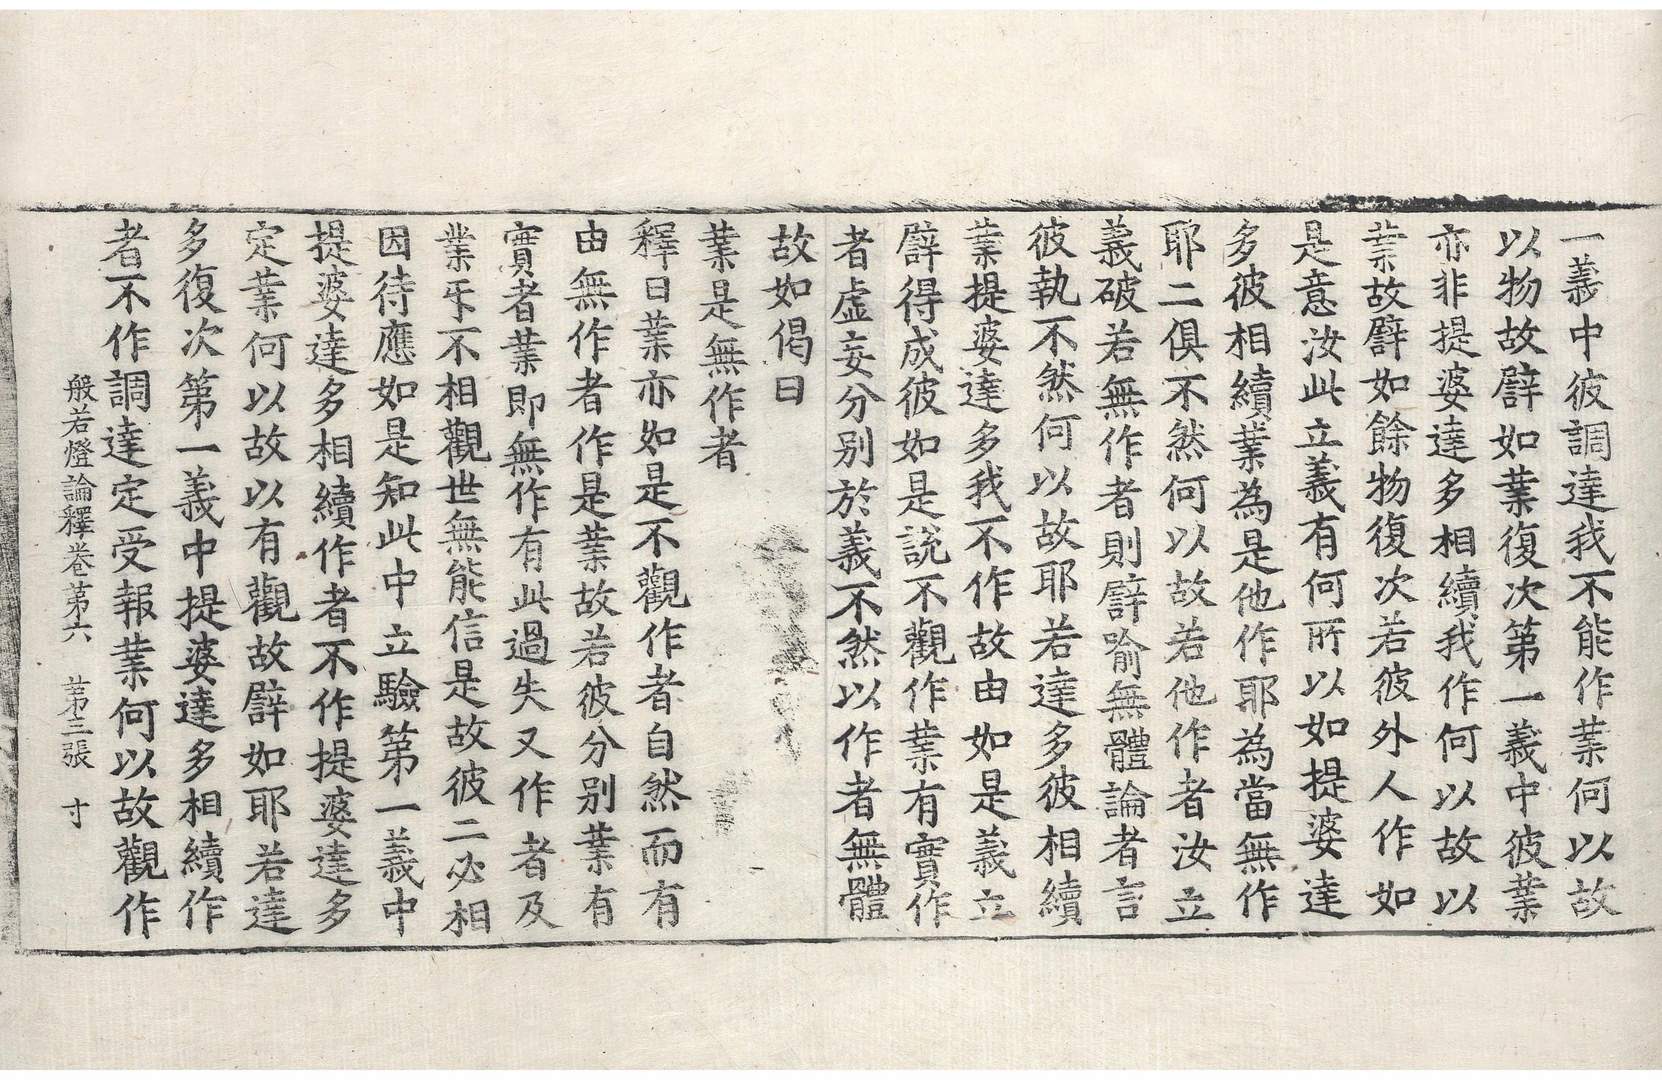 一義中彼調達我不能作業何以故
以物故譬如業復次第一義中彼業
亦非提婆達多相續我作何以故以
業故譬如餘物復次若彼外人作如
是意汝此立義有何所以如提婆達
多彼相續業為是他作耶為當無作
耶二俱不然何以故若他作者汝立
義破若無作者則譬喻無體論者言
彼執不然何以故耶若達多彼相續
業提婆達多我不作故由如是義立
譬得成彼如是說不觀作業有實作
者虛妄分別於義不然以作者無體
故如偈曰
業是無作者
釋曰業亦如是不觀作者自然而有
由無作者作是業故若彼分別業有
實者業即無作有此過失又作者及
業乎不相觀世無能信是故彼二必相
因待應如是知此中立驗第一義中
提婆達多相續作者不作提婆達多
定業何以故以有觀故譬如耶若達
多復次第一義中提婆達多相續作
者不作調達定受報業何以故觀作
般若燈論釋卷第六 第三張 寸